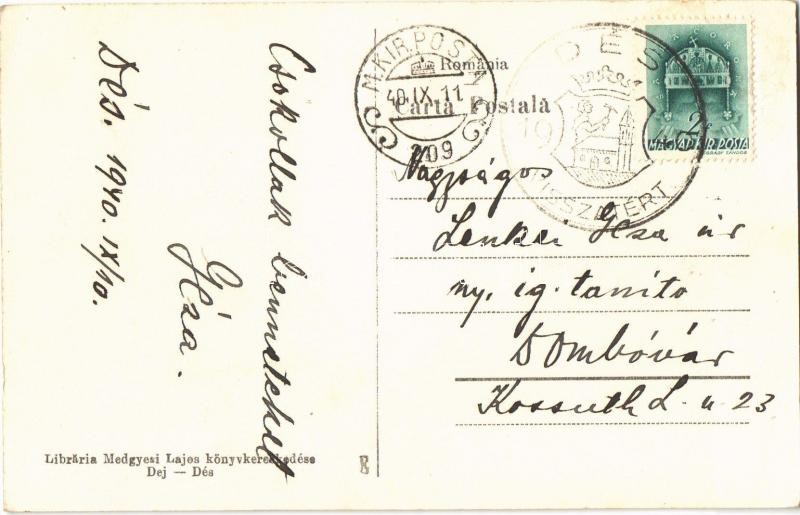 Dés. 1940. IX/10.
Csokollak benneteket
Géza.
Libraria Medgyesi Lajos könyvkereskedése
Dej — Dés
România
Carta Postala
M.KIR.POSTA
40.IX.11
209
DÉS
19
VISSZATÉRT
2f
MAGYAR KIR. POSTA
Nagyságos
Lenkei Géza úr
ny. ig. tanító
Dombóvár
Kossuth L. u 23